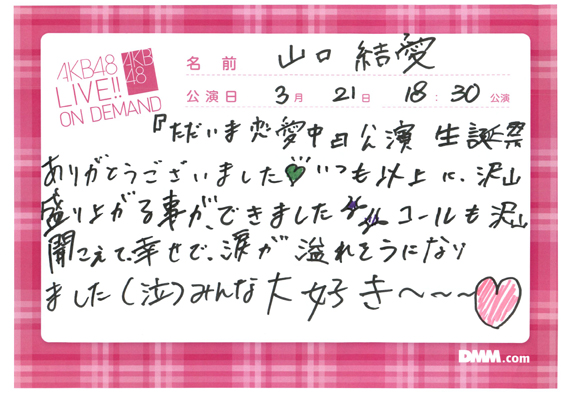 AKB48
LIVE!!
ON DEMAND
AKB
48
名前 山口 結愛
公演日 3月 21日 18:30 公演
『ただいま恋愛中』公演 生誕祭
ありがとうございました いつも以上に、沢山
盛り上がる事が、できました コールも沢山
聞こえて、幸せで、涙が溢れそうになり
ました(泣)みんな大好き〜〜〜
DMM.com